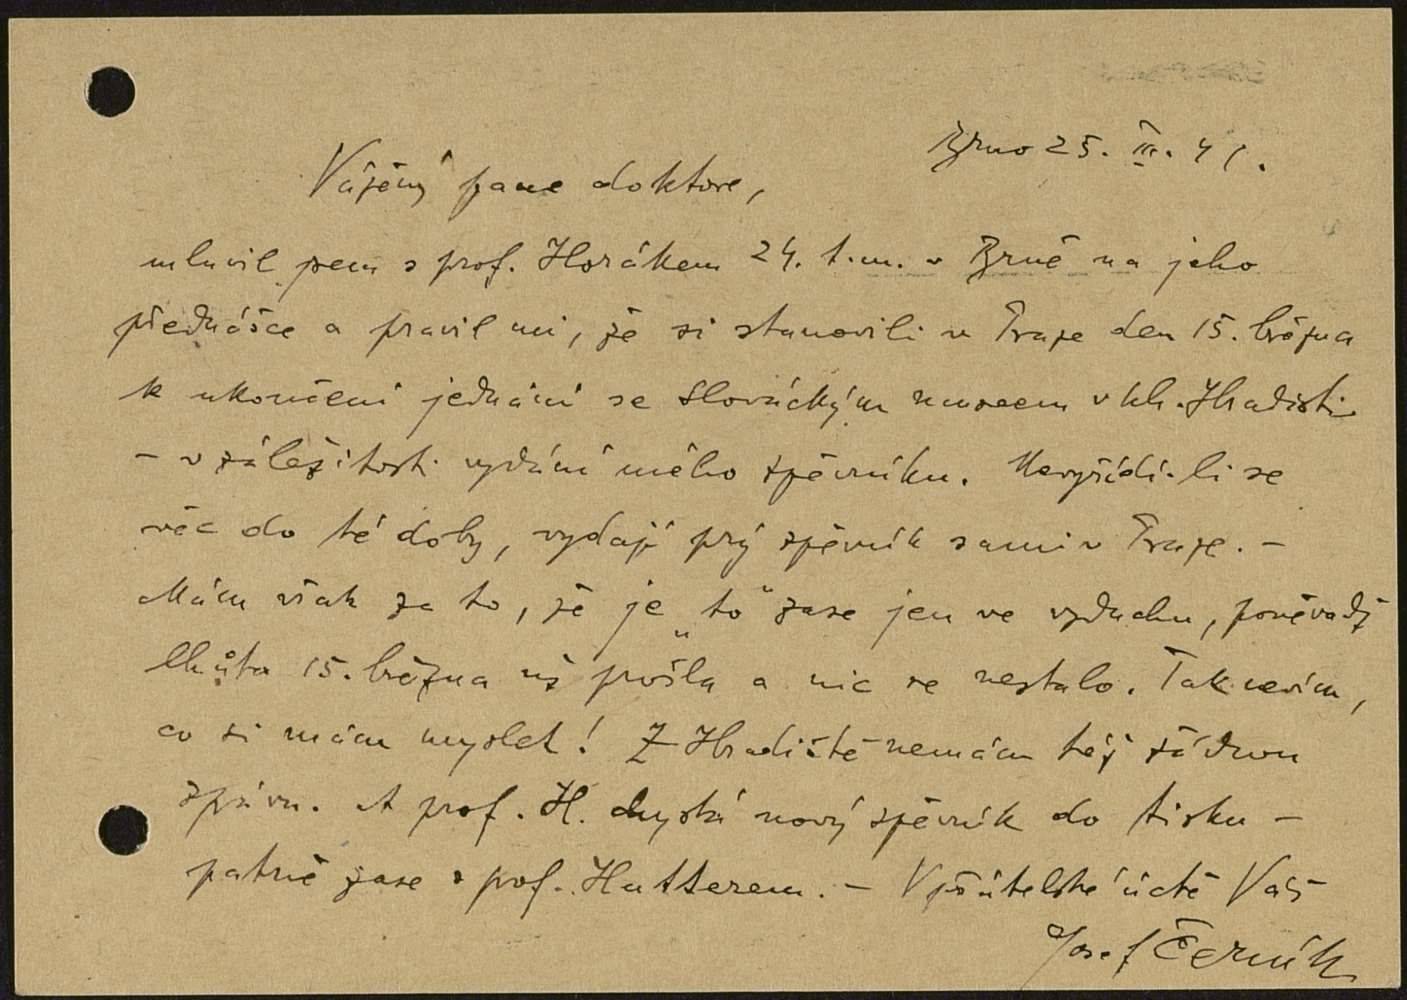 Brno 25. III. 41.
Vážený pane doktore,
mluvil jsem s prof. Horákem 24. t.m. v Brně na jeho
přednášce a pravil mi, že si stanovili v Praze den 15. března
k ukončení jednání se Slováckým museem v Uh. Hradišti
– v záležitosti vydání mého zpěvníku. Nevyřídí-li se
věc do té doby, vydají prý zpěvník sami v Praze. –
Mám však za to, že je „to" zase jen ve vzduchu, poněvadž
lhůta 15. března už prošla a nic se nestalo. Tak nevím,
co si mám myslet! Z Hradiště nemám též žádnou
zprávu. A prof. H. chystá nový zpěvník do tisku –
patrně zase s prof. Hutterem. – V přátelské úctě Váš
Josef Černík